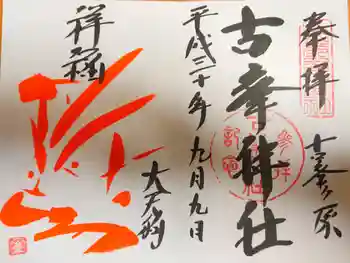 奉拝
古峯ヶ原
古峯神社
平成三十年九月九日
大天狗
参拝
記念